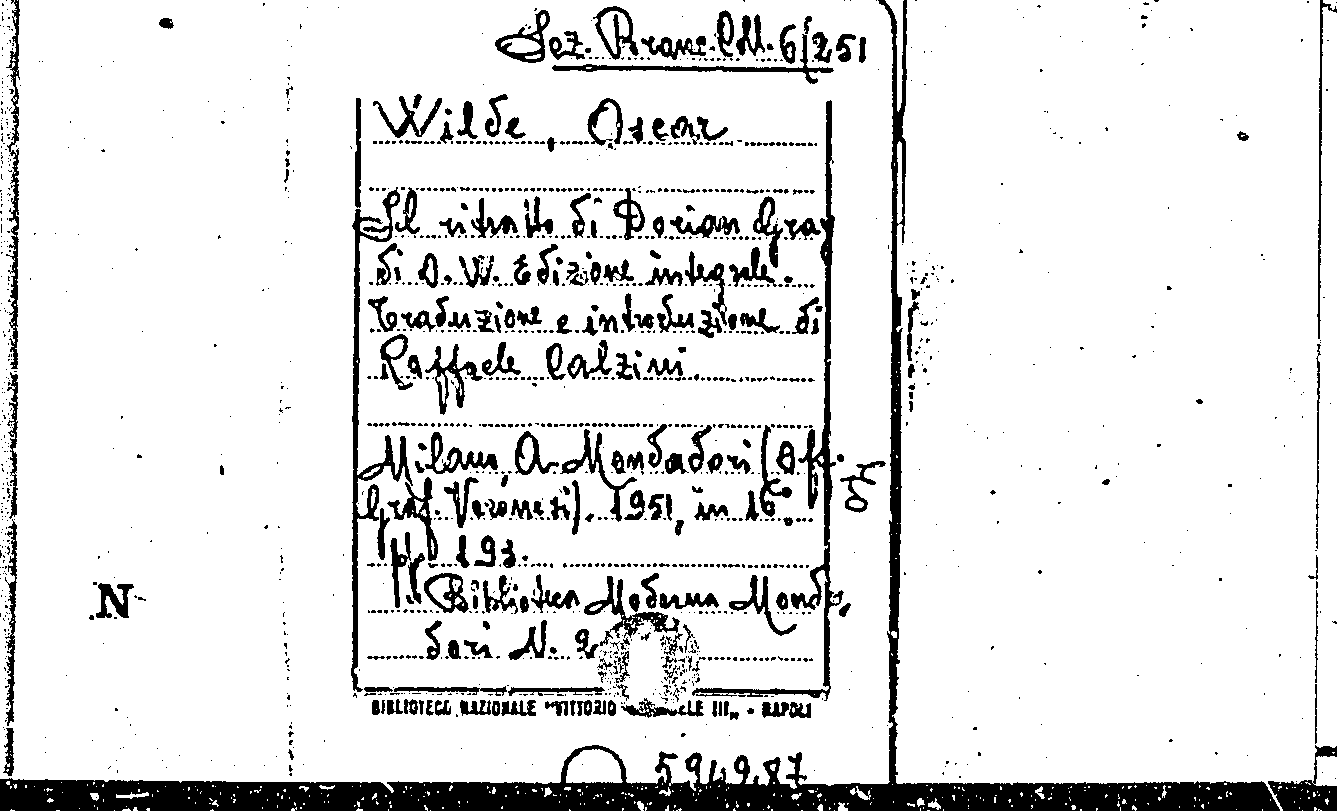 Sez. Branc. Coll. 6(251
Wilde, Oscar
Il ritratto di Dorian Gray
di O. W. Edizione integrale.
Traduzione e introduzione di
Raffaele Calzini.
Milano, A. Mondadori (Off.
Graf. Veronesi). 1951, in 16°.
pp. 193.
Biblioteca Moderna Monda
dori N. 2
BIBLIOTECA NAZIONALE "VITTORIO III„ - NAPOLI
N
594987